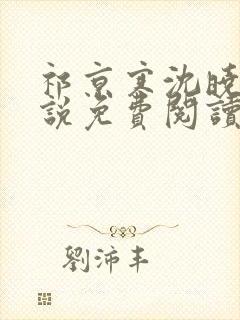 祁京寒沈晓
說免費閱讀
劉沛丰